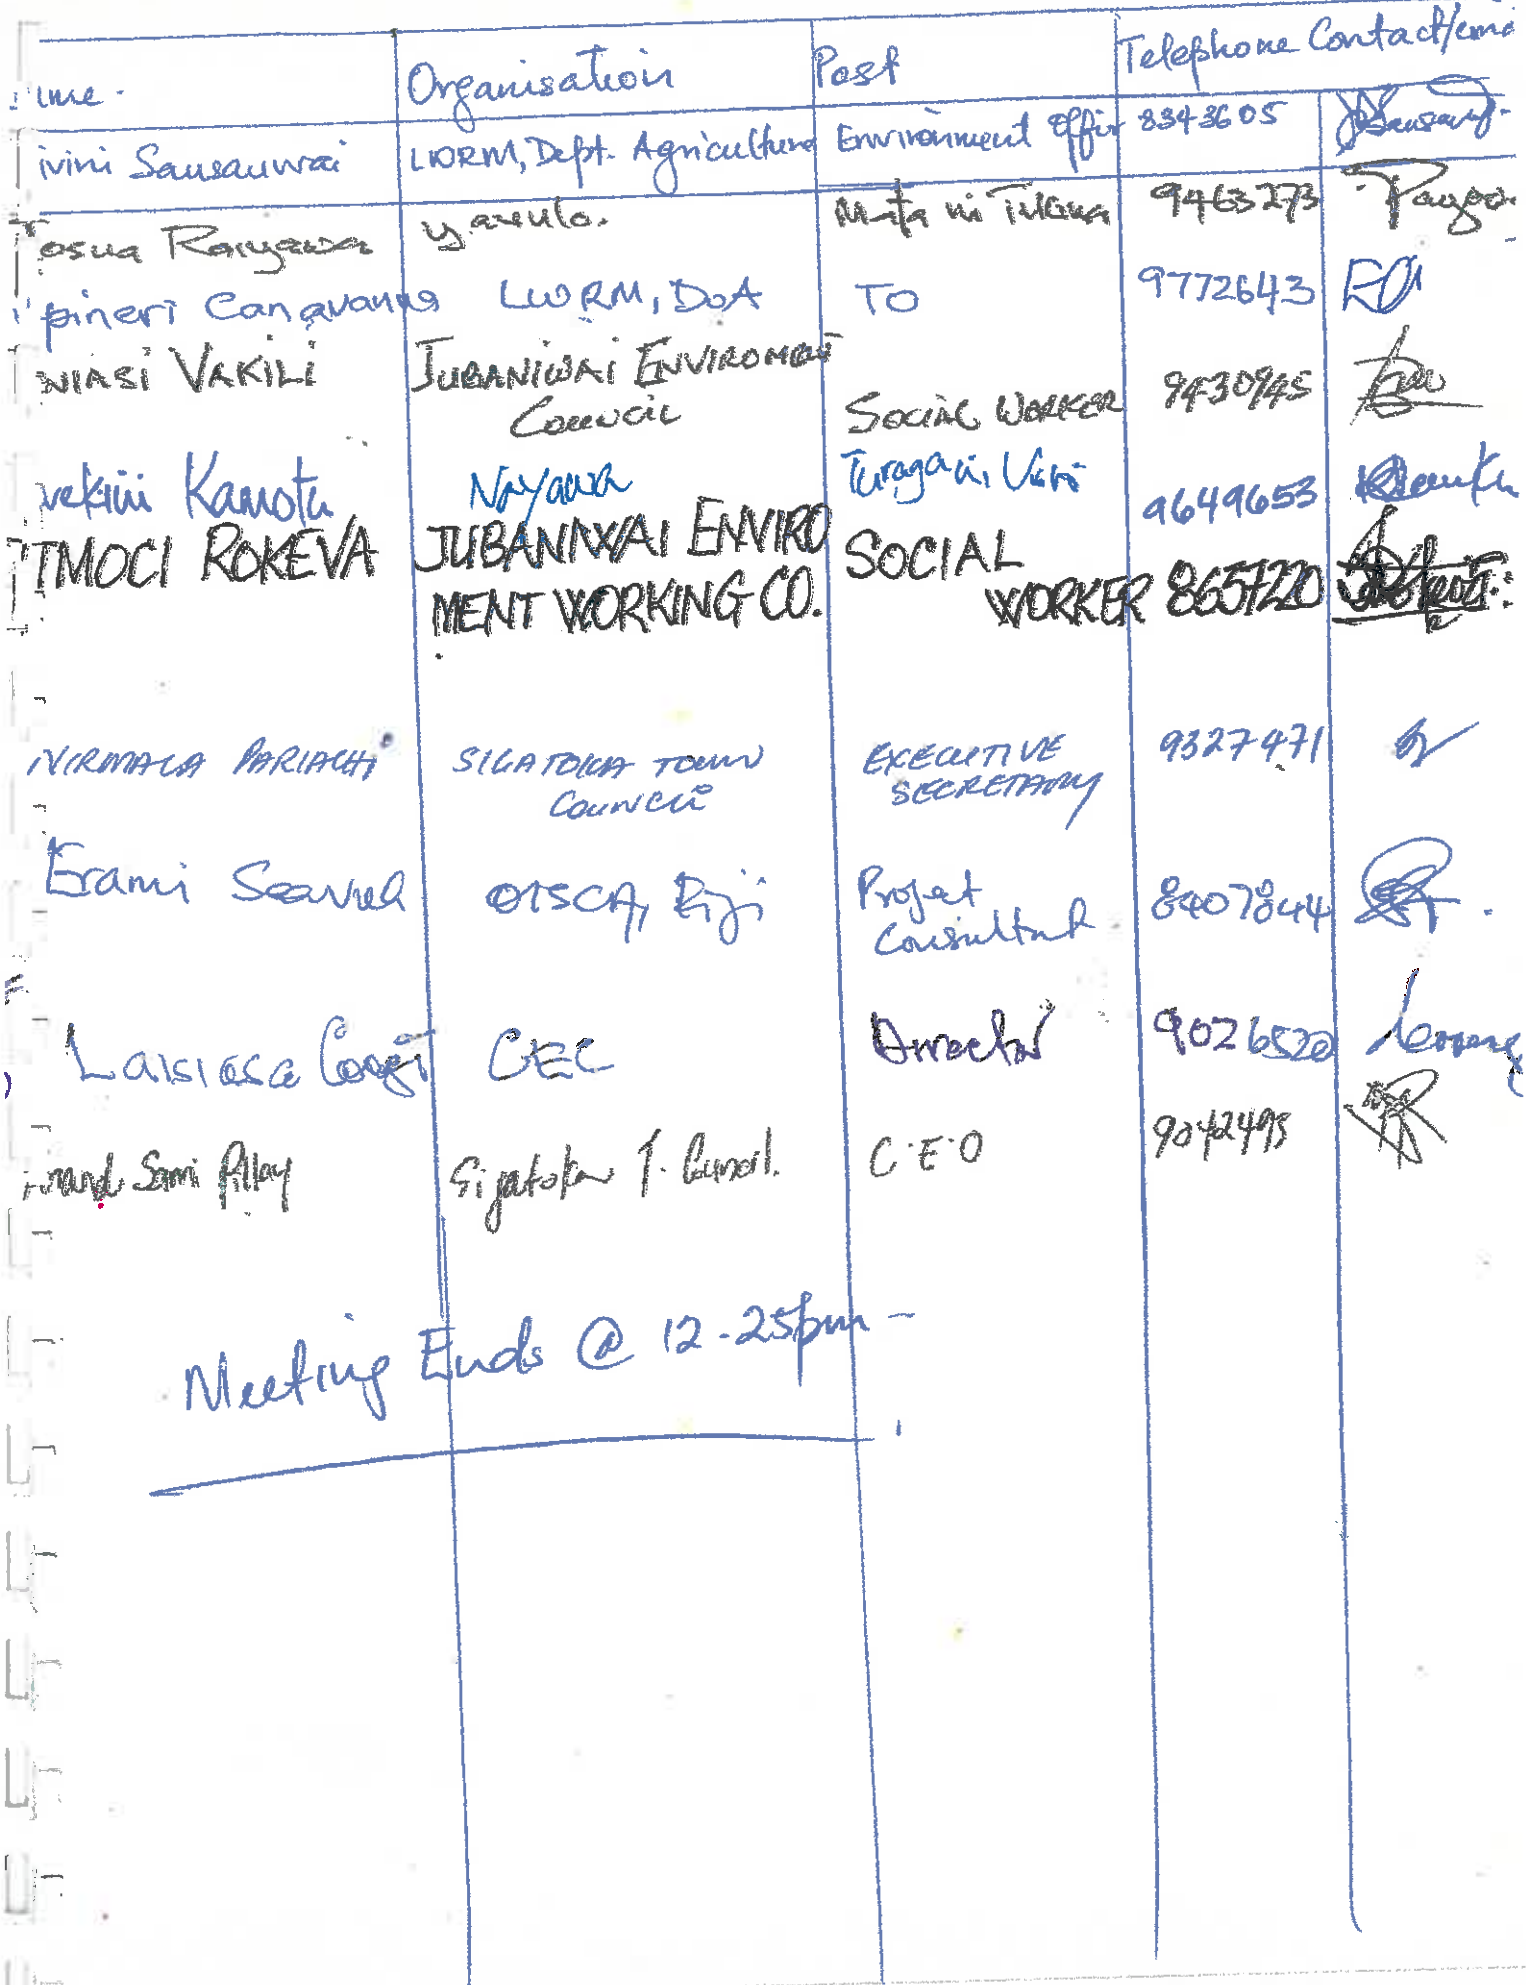 Organisation Post Telephone Contact/ema
ivini Sausauwai LWRM, Dept. Agriculture Environment Offi 8343605
osua Raiyawa yavulo. Mata ni Tikina 9463273
pineri Canavanua LWRM, DoA TO 9772643
NIASI VAKILI JUBANIWAI ENVIROMENT
Council SOCIAL WORKER 9430945
vekini Kamotu Nayawa Turaga ni Vanua 9649653
TMOCI ROKEVA JUBANIWAI ENVIRO SOCIAL
MENT WORKING CO. WORKER 8657220
NIRMALA PARIACHI SIGATOKA TOWN EXECUTIVE 9327471
COUNCIL SECRETARY
Erami Seavula OISCA, Fiji Project 8407844
Consultant
Laisiasa Corerega CEC Director 9026520
Sami Pillay Sigatoka T. Council. C.E.O 9042495
Meeting Ends @ 12-25pm -